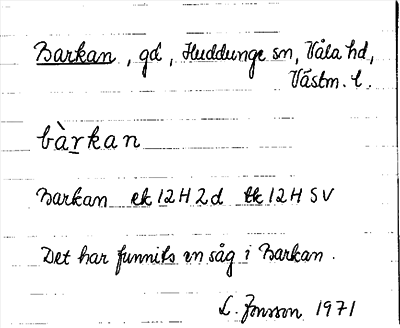 Barkan, gd, Huddunge sn, Våla hd,
Västm. l.
bàrkan
Barkan ek 12H2d tk 12H SV
Det har funnits en såg i Barkan.
L. Jonsson 1971